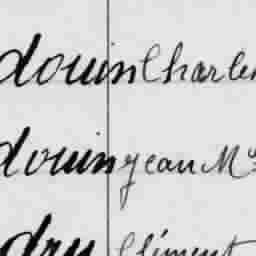 douin Charles
douin Jean M
dru Clément